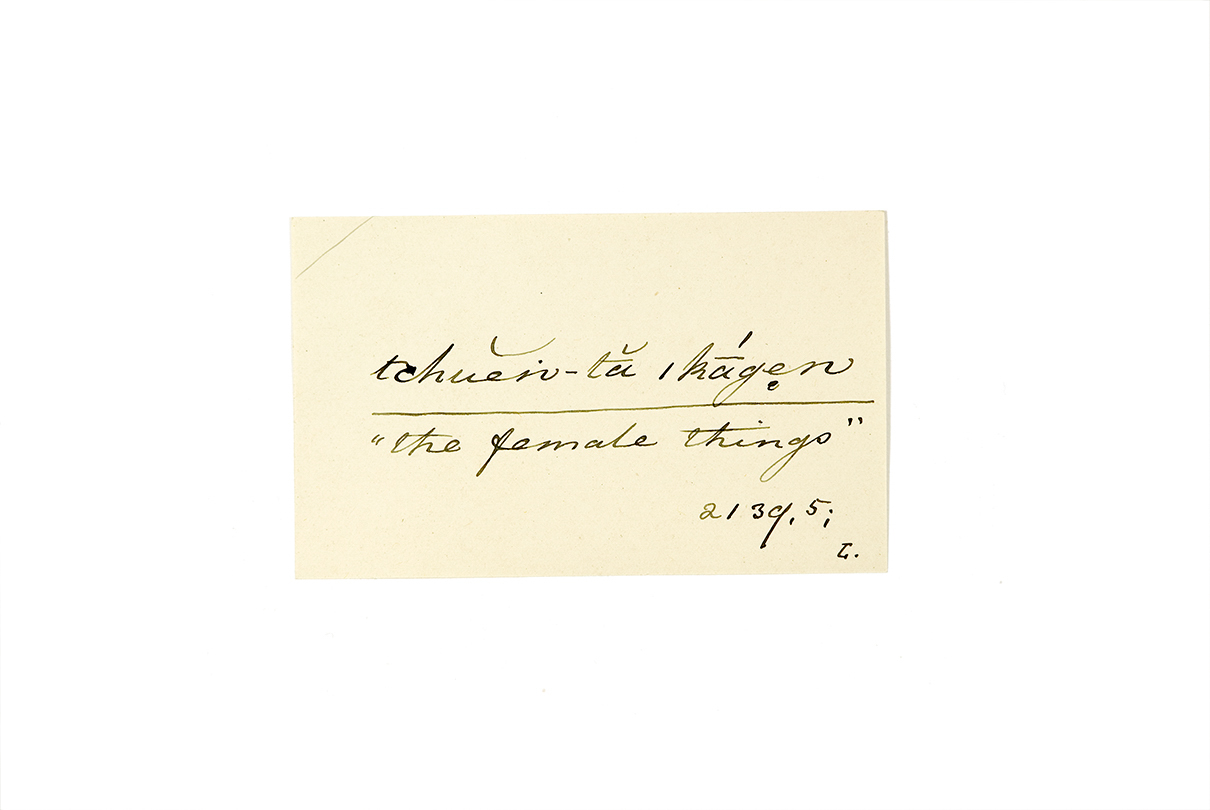 tchuĕn-tă ıkā́gẹn
“the female things”
2139, 5;
T.